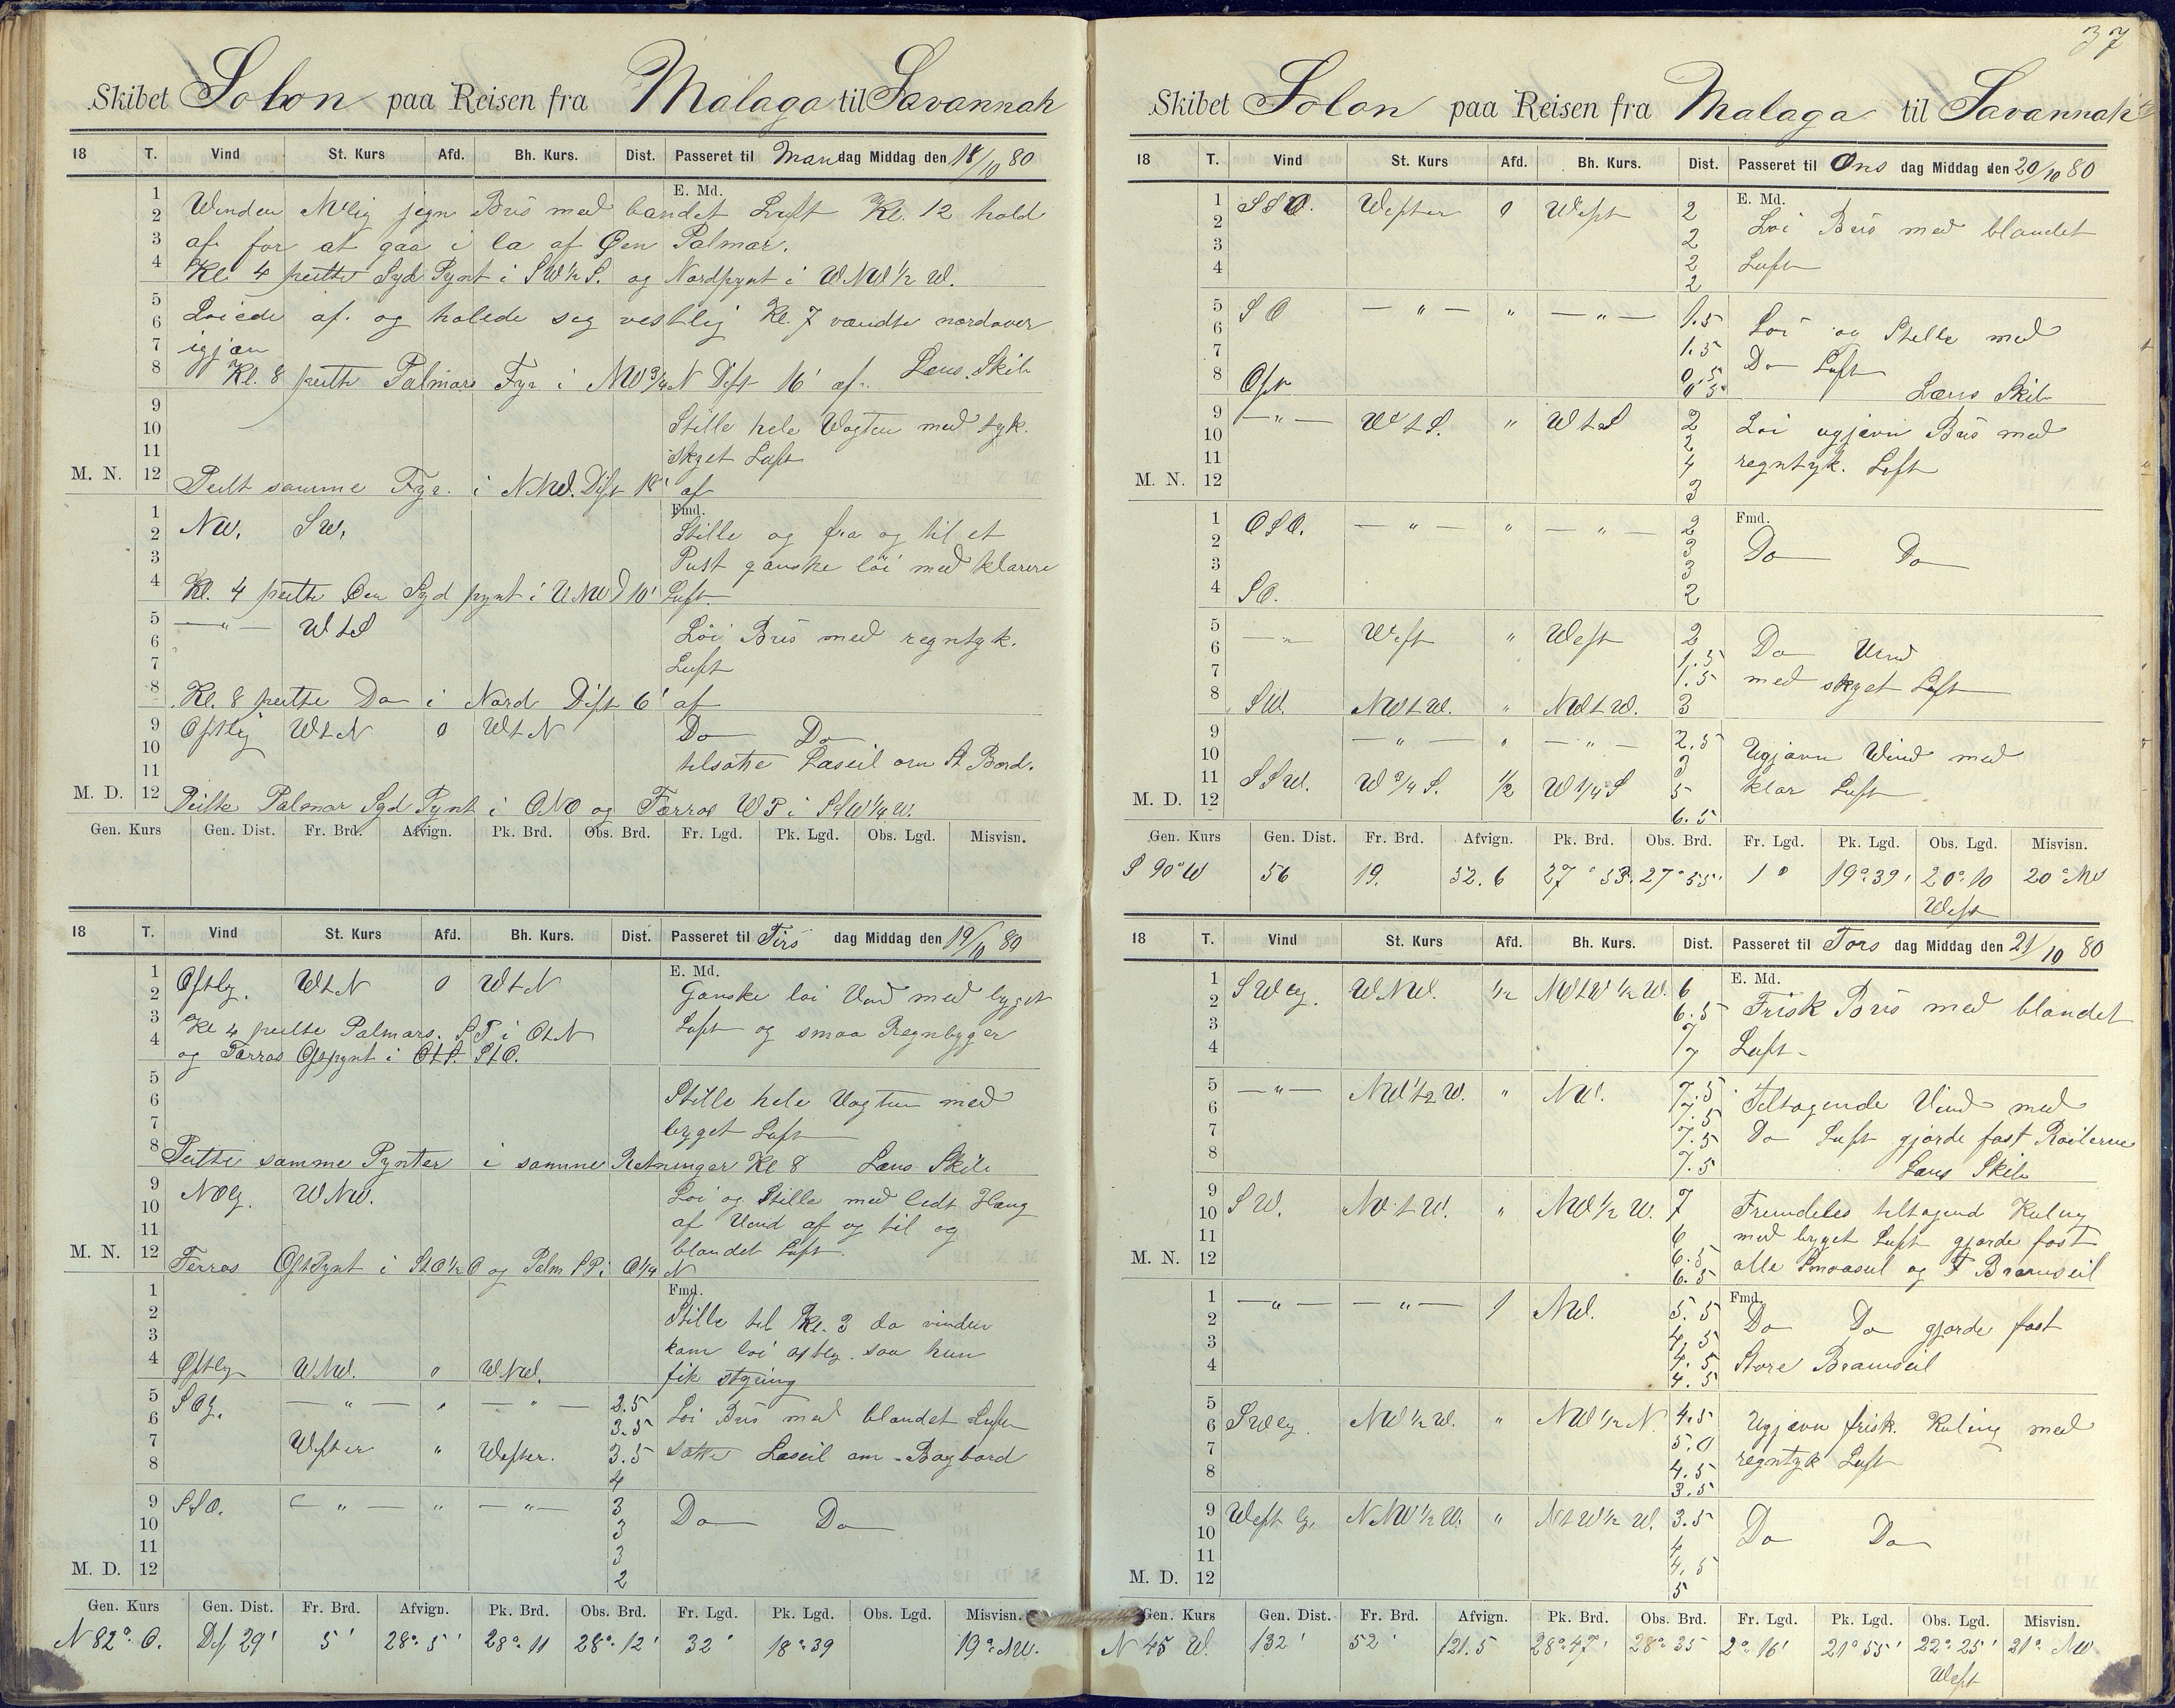 Skibet Solon paa Reisen fra Malaga til Savannah
18 T. Vind St. Kurs Afd. Bh. Kurs. Dist. Passeret til Mandag Middag den 18/10 80
E. Md.
1
2
3
4
Vinden NVlig jegn Bris med blandet Luft Kl. 12 hold
af for at gaa i la af Øen Palmar.
Kl 4 peilte Syd Pynt i SW½S. og Nordpynt i WNW½W.
5
6
7
8
Løiede af. og holede seg vestlig Kl. 7 vendte nordover
igjæn
Kl. 8 peilte Palmars Fyr i NW¾N Dist 16' af. Læns Skib
9
10
11
M. N. 12
Stille hele Vagten med tyk.
skyet Luft
Peilt samme Fyr. i NNW. Dist 18' af
Fmd.
1
2
3
4
NW. SW. Stille og fra og til et
Pust ganske løi med klarere
Kl. 4 peilte Øen Syd pynt i WNW D 10' Luft.
5
6
7
8
— " — WtS Løi Bris med regntyk.
Luft
Kl. 8 peilte Do i Nord Dist 6' af
9
10
11
M. D. 12
Østlig WtN 0 WtN Do Do
tilsatte Læseil om St Bord.
Peilte Palmar Syd Pynt i ONO og Færros WP i SSW¼W.
Gen. Kurs Gen. Dist. Fr. Brd. Afvign. Pk. Brd. Obs. Brd. Fr. Lgd. Pk. Lgd. Obs. Lgd. Misvisn.
18 T. Vind St. Kurs Afd. Bh. Kurs. Dist. Passeret til Tirsdag Middag den 19/10 80
E. Md.
1
2
3
4
Østlg. WtN 0 WtN Ganske løi Vind med byget
Kl 4 peilte Palmars. SP i OtN Luft og smaa Regnbyger
og Færros Østpynt i OtS. StO.
5
6
7
8
Stille hele Vagten med
byget Luft
Peilte samme Pynter i samme Retninger Kl 8 Læns Skib
9
10
11
M. N. 12
NOlg. WNW. Løi og Stille med lidt Flaug
af Vind af og til og
blandet Luft.
Ferros Øst Pynt i StO½O og Palm SP i O¼N
Fmd.
1
2
3
4
Stille til Kl. 3 da vinden
kom løi østlg. saa hun
Østlg WNW. 0 WNW. fik styring
5
6
7
8
SOlg. — " — " — " — 2.5 Løi Bris med blandet Luft
3.5
Wester " Wester. 3.5 satte Læseil om Bagbord
4
9
10
11
M. D. 12
SSO. — " — " — " — 3 Do Do
3
3
2
Gen. Kurs Gen. Dist. Fr. Brd. Afvign. Pk. Brd. Obs. Brd. Fr. Lgd. Pk. Lgd. Obs. Lgd. Misvisn.
N 82° O. Dist 29' 5' 28° 5' 28° 11 28° 12' 32' 18° 39 19° NW.
37
Skibet Solon paa Reisen fra Malaga til Savannah
18 T. Vind St. Kurs Afd. Bh. Kurs. Dist. Passeret til Onsdag Middag den 20/10 80
E. Md.
1
2
3
4
SSO. Wester 0 West 2 Løi Bris med blandet
2
2 Luft
2
5
6
7
8
SO — " — " — " — 1.5 Løi og Stille med
1.5 Do Luft
0.5
Ost 0.5 Læns Skib
9
10
11
M. N. 12
— " — WtS. " WtS 2 Løi ugjævn Bris med
2
4 regntyk. Luft
3
Fmd.
1
2
3
4
OSO. — " — " — " — 2 Do Do
3
3
SO. 2
5
6
7
8
— " West " West 2 Do Vind
1.5
1.5 med skyet Luft
SW. NWtW. " NWtW. 3
9
10
11
M. D. 12
— " — " — " — 2.5 Ugjævn Vind med
3
SSW. W¾S. ½ W¼S 5 klar Luft
6.5
Gen. Kurs Gen. Dist. Fr. Brd. Afvign. Pk. Brd. Obs. Brd. Fr. Lgd. Pk. Lgd. Obs. Lgd. Misvisn.
S 90° W 56 19. 52.6 27° 53. 27° 55' 1° 19° 39' 20° 10 20° NW
West
18 T. Vind St. Kurs Afd. Bh. Kurs. Dist. Passeret til Torsdag Middag den 21/10 80
E. Md.
1
2
3
4
SWlg. WNW. ½ NWtW½W. 6 Frisk Bris med blandet
6.5
7 Luft
7
5
6
7
8
— " — NWt½W. " NW. 7.5 Tiltagende Vind med
7.5
7.5 Do Luft gjorde fast Røilerne
7.5 Læns Skib
9
10
11
M. N. 12
SW. NWtW. " NW½W. 7 Fremdeles tiltagend Kuling
6 med byget Luft gjorde fast
6.5 alle Smaaseil og F Bramseil
6.5
Fmd.
1
2
3
4
— " — — " — 1 NW. 5.5 Do Do gjorde fast
4.5
4.5 Store Bramseil
4.5
5
6
7
8
SWlg. NW½W. " NW½N. 4.5 Ugjævn frisk. Kuling med
5.0
4.5 regntyk Luft
3.5
9
10
11
M. D. 12
West lg. NNW½W. " NtW½W. 3.5 Do Do
4
4.5
5
Gen. Kurs Gen. Dist. Fr. Brd. Afvign. Pk. Brd. Obs. Brd. Fr. Lgd. Pk. Lgd. Obs. Lgd. Misvisn.
N 45 W. 132' 52' 121.5 28° 47' 28° 35 2° 16' 21° 55' 22° 25' 21° NW.
West